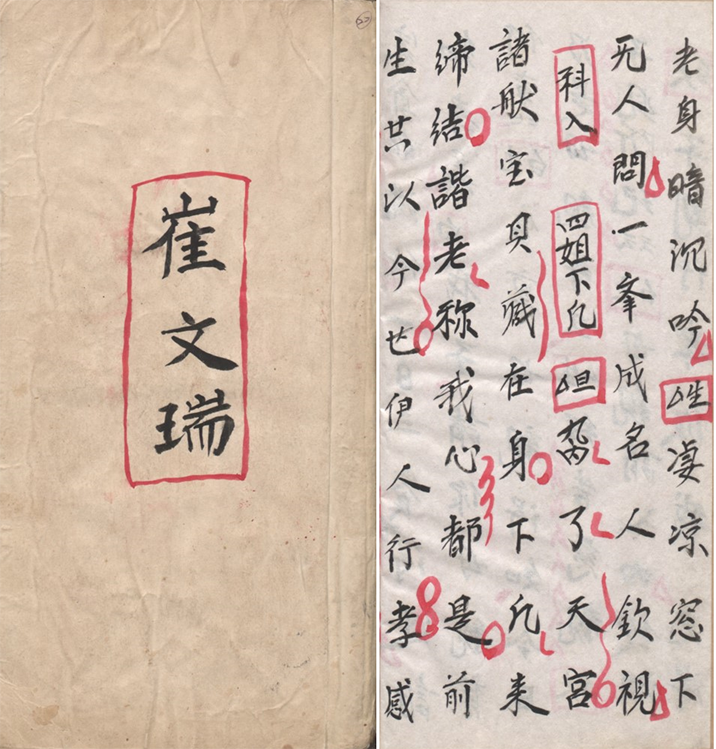 崔文瑞
老身暗沉吟 △生 凄凉窓下
无人問一举成名人欽視
科入 四姐下凡 △旦 离了天宮
諸般宝貝藏在身下凡来
締结諧老称我心都是前
生共以今世伊人行孝感